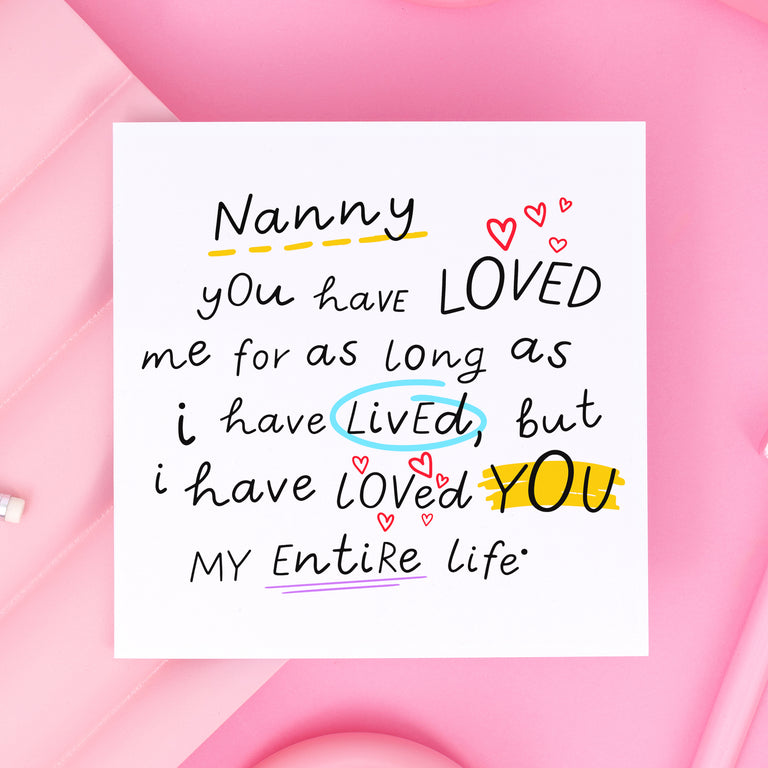 Nanny
you have LOVED
me for as long as
i have LivEd, but
i have loved YOU
MY EntiRe life.